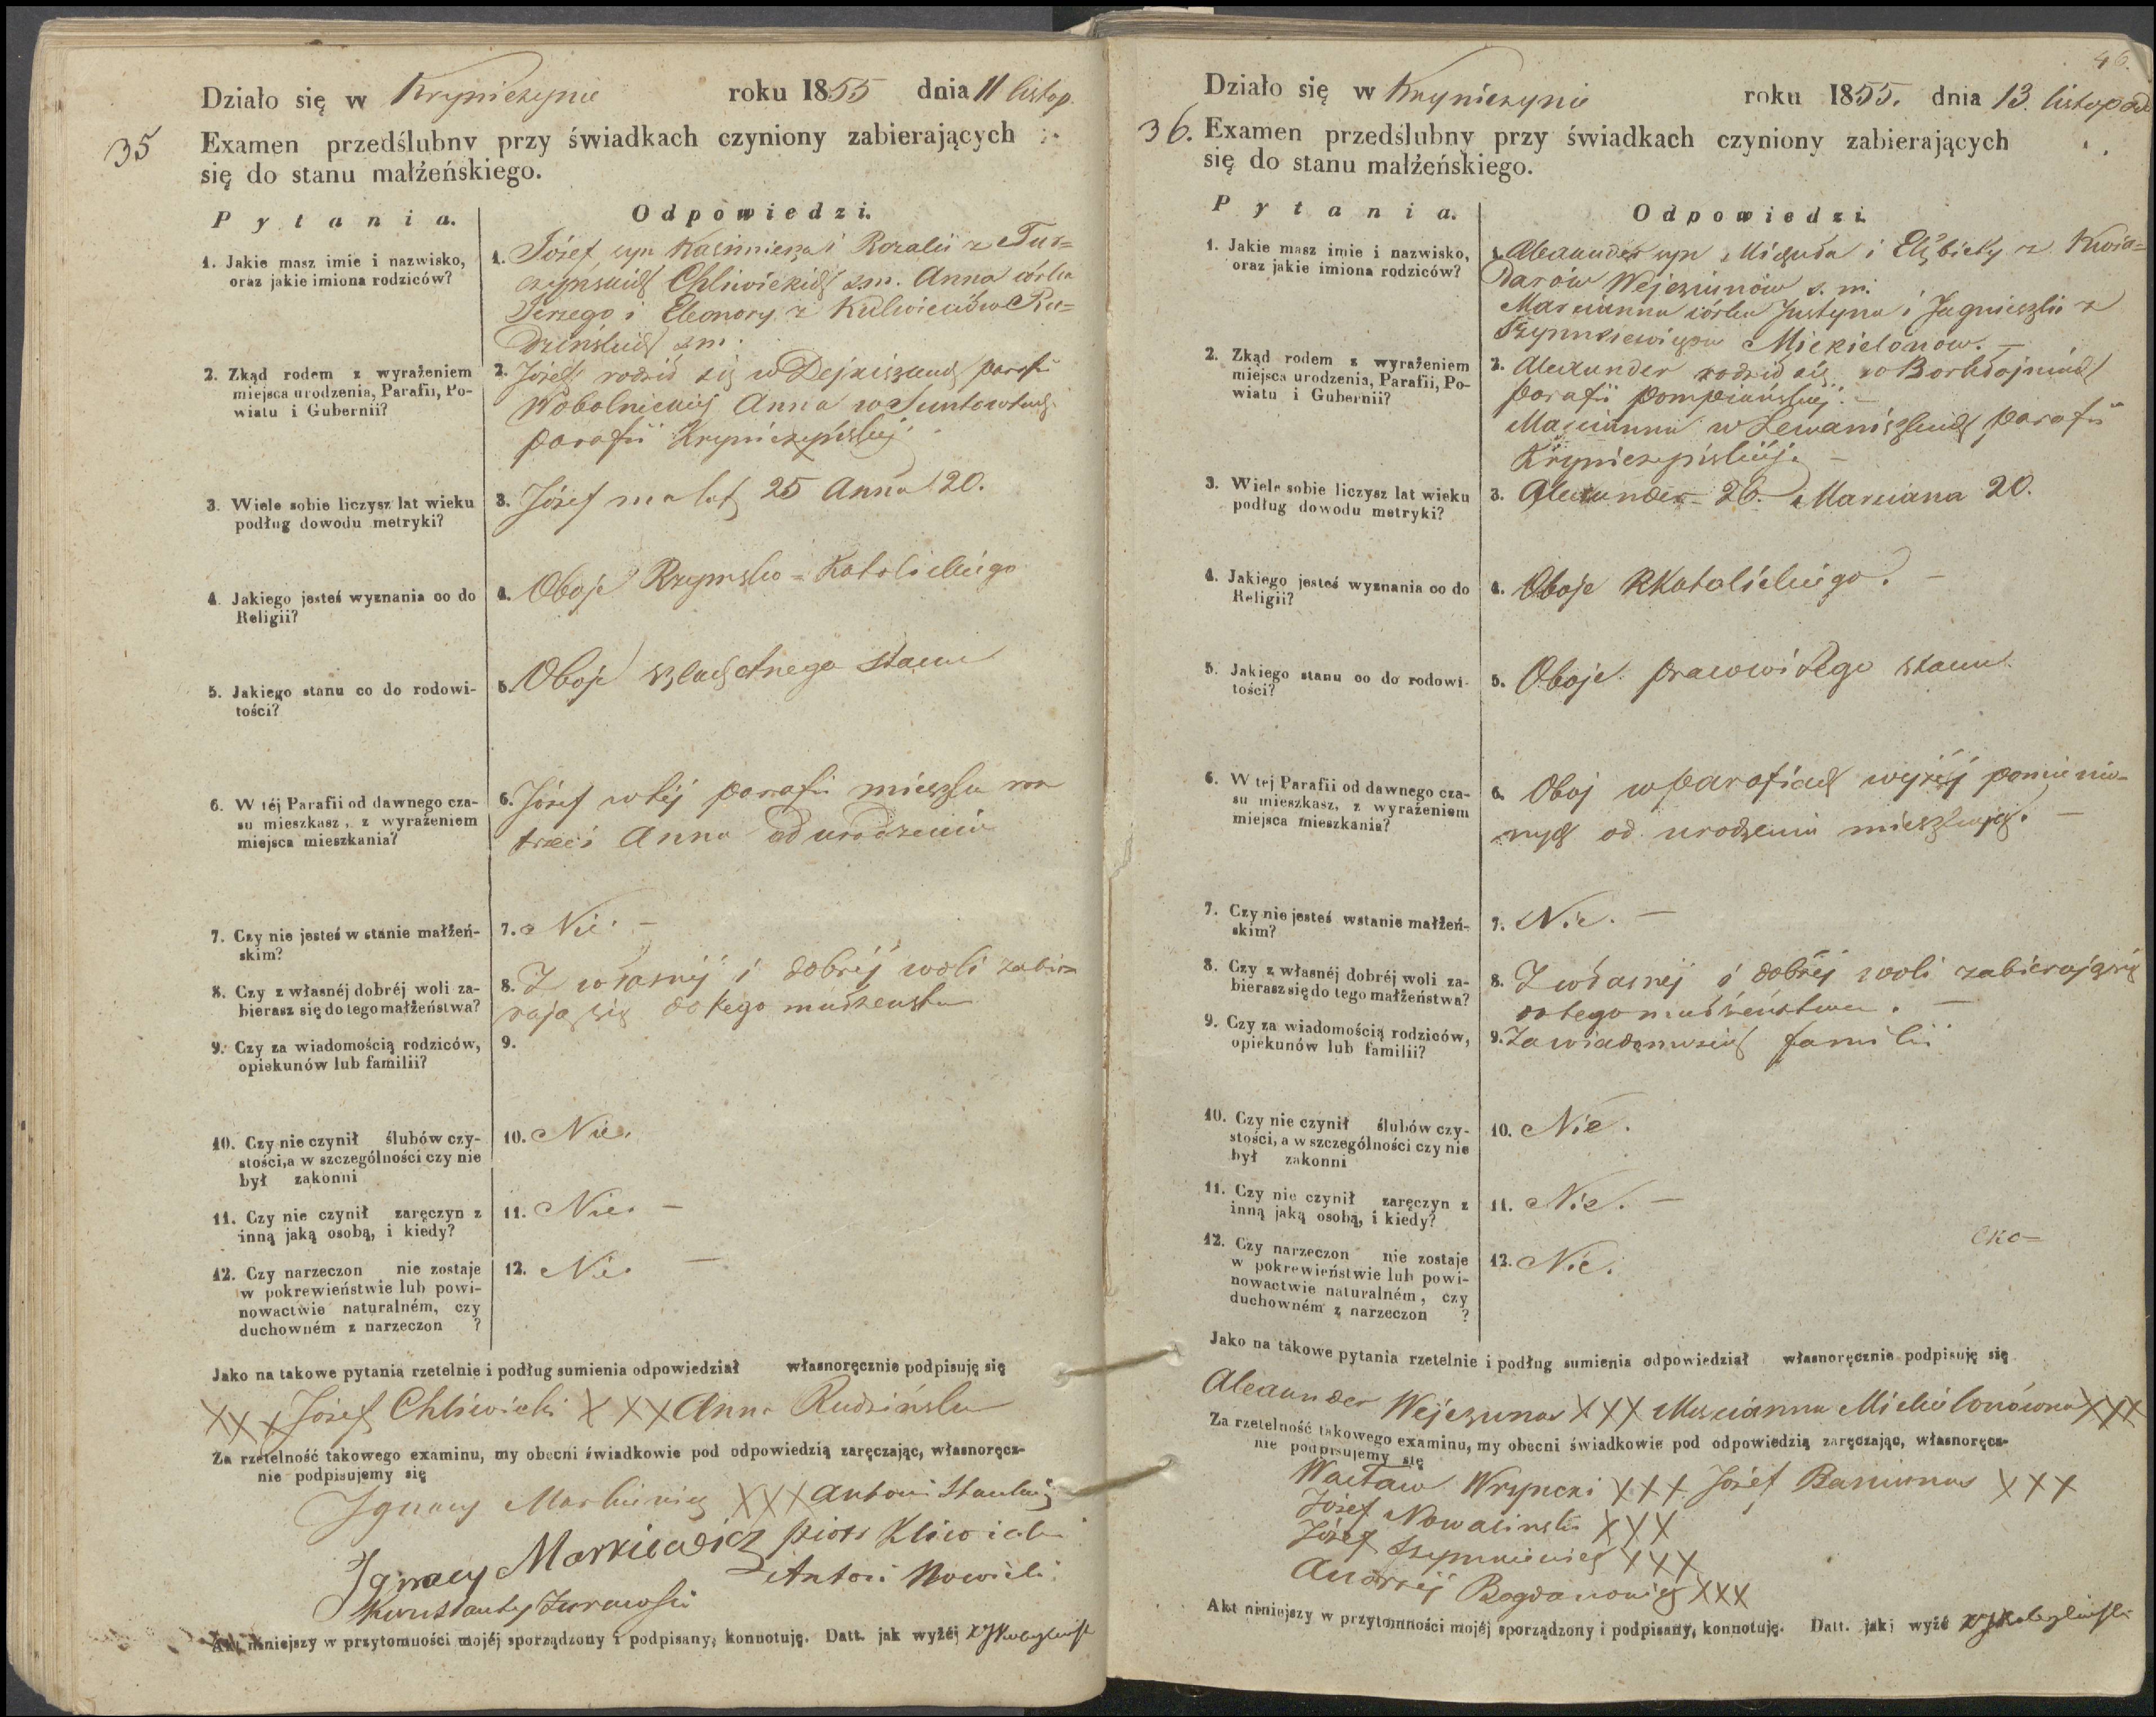 Działo się w Kryniczynie roku 1855 dnia 11 listop.
35 Examen przedślubny przy świadkach czyniony zabierających
się do stanu małżeńskiego.
Pytania. Odpowiedzi.
1. Jakie masz imie i nazwisko,
oraz jakie imiona rodziców?
1. Józef syn Kazimierza i Rozalii z Tur=
czyńskich Chliwickich s.m. Anna córka
Jerzego i Eleonory z Kulwiców Ru=
dzińskich s.m.
2. Zkąd rodem z wyrażeniem
miejsca urodzenia, Parafii, Po-
wiatu i Gubernii?
2. Józef rodził się w Dejkiszkach parafii
Wobolnickiej Anna w Suntowtach
parafii Kryniczyńskiej
3. Wiele sobie liczysz lat wieku
podług dowodu metryki?
3. Józef ma lat 25 Anna 20.
4. Jakiego jesteś wyznania co do
Religii?
4. Oboje Rzymsko=Katolickiego
5. Jakiego stanu co do rodowi-
tości?
5. Oboje szlachetnego stanu
6. W téj Parafii od dawnego cza-
su mieszkasz, z wyrażeniem
miejsca mieszkania?
6. Józef w téj parafii mieszka rok
trzeci Anna od urodzenia
7. Czy nie jesteś w stanie małżeń-
skim?
7. Nie. —
8. Czy z własnéj dobréj woli za-
bierasz się do tego małżeństwa?
8. Z własnéj i dobréj woli zabie
rają się do tego małżeństwa
9. Czy za wiadomością rodziców,
opiekunów lub familii?
9.
10. Czy nie czynił ślubów czy-
stości, a w szczególności czy nie
był zakonni
10. Nie.
11. Czy nie czynił zaręczyn z
inną jaką osobą, i kiedy?
11. Nie. —
12. Czy narzeczon nie zostaje
w pokrewieństwie lub powi-
nowactwie naturalném, czy
duchowném z narzeczon ?
12. Nie. —
Jako na takowe pytania rzetelnie i podług sumienia odpowiedział własnoręcznie podpisuję się
XXX Józef Chliwicki XXX Anna Rudzińska
Za rzetelność takowego examinu, my obecni świadkowie pod odpowiedzią zaręczając, własnoręcz-
nie podpisujemy się
Ignacy Markiewicz XXX Antoni
Ignacy Markiewicz Piotr Kliwicki
Antoni Nowicki
Konstanty Żurawski
Akt niniejszy w przytomności mojéj sporządzony i podpisany, konnotuję. Datt. jak wyżéj
46.
Działo się w Kryniczynie roku 1855. dnia 13. listopad
36. Examen przedślubny przy świadkach czyniony zabierających
się do stanu małżeńskiego.
Pytania. Odpowiedzi.
1. Jakie masz imie i nazwisko,
oraz jakie imiona rodziców?
1. Alexander syn Michała i Elżbiety z Kwia=
darów Wejczunów s.m.
Marcianna córka Justyna i Jagnieszki z
Szymkiewiczów Mickielonów. —
2. Zkąd rodem z wyrażeniem
miejsca urodzenia, Parafii, Po-
wiatu i Gubernii?
2. Alexander rodził się w Borklojniach
parafii pompiańskiej. —
Marcianna w Lewaniszkach parafii
Kryniczyńskiéj. —
3. Wiele sobie liczysz lat wieku
podług dowodu metryki?
3. Alexander 26. Marciana 20.
4. Jakiego jesteś wyznania co do
Religii?
4. Oboje RKatolickiego. —
5. Jakiego stanu co do rodowi-
tości?
5. Oboje prawwitego stanu.
6. W tej Parafii od dawnego cza-
su mieszkasz, z wyrażeniem
miejsca mieszkania?
6. Oboj w parafiach wyżéj pomienio-
nych od urodzenia mieszkają. —
7. Czy nie jesteś wstanie małżeń-
skim?
7. Nie. —
8. Czy z własnéj dobréj woli za-
bierasz się do tego małżeństwa?
8. Z własnéj i dobréj woli zabierają się
do tego małżeństwa. —
9. Czy za wiadomością rodziców,
opiekunów lub familii?
9. Za wiadomością familii
10. Czy nie czynił ślubów czy-
stości, a w szczególności czy nie
był zakonni
10. Nie.
11. Czy nie czynił zaręczyn z
inną jaką osobą, i kiedy?
11. Nie. —
12. Czy narzeczon nie zostaje
w pokrewieństwie lub powi-
nowactwie naturalném, czy
duchowném z narzeczon ?
12. Nie.
Jako na takowe pytania rzetelnie i podług sumienia odpowiedział własnoręcznie podpisuję się
Alexander Wejczunas XXX Marcianna Mickielonówna XXX
Za rzetelność takowego examinu, my obecni świadkowie pod odpowiedzią zaręczając, własnoręcz-
nie podpisujemy się
Wacław XXX Józef Baniunas XXX
Józef Nowaliński XXX
Józef Szymkiewicz XXX
Andrzéj Bogdanowicz XXX
Akt niniejszy w przytomności mojéj sporządzony i podpisany, konnotuję. Datt. jak wyżé